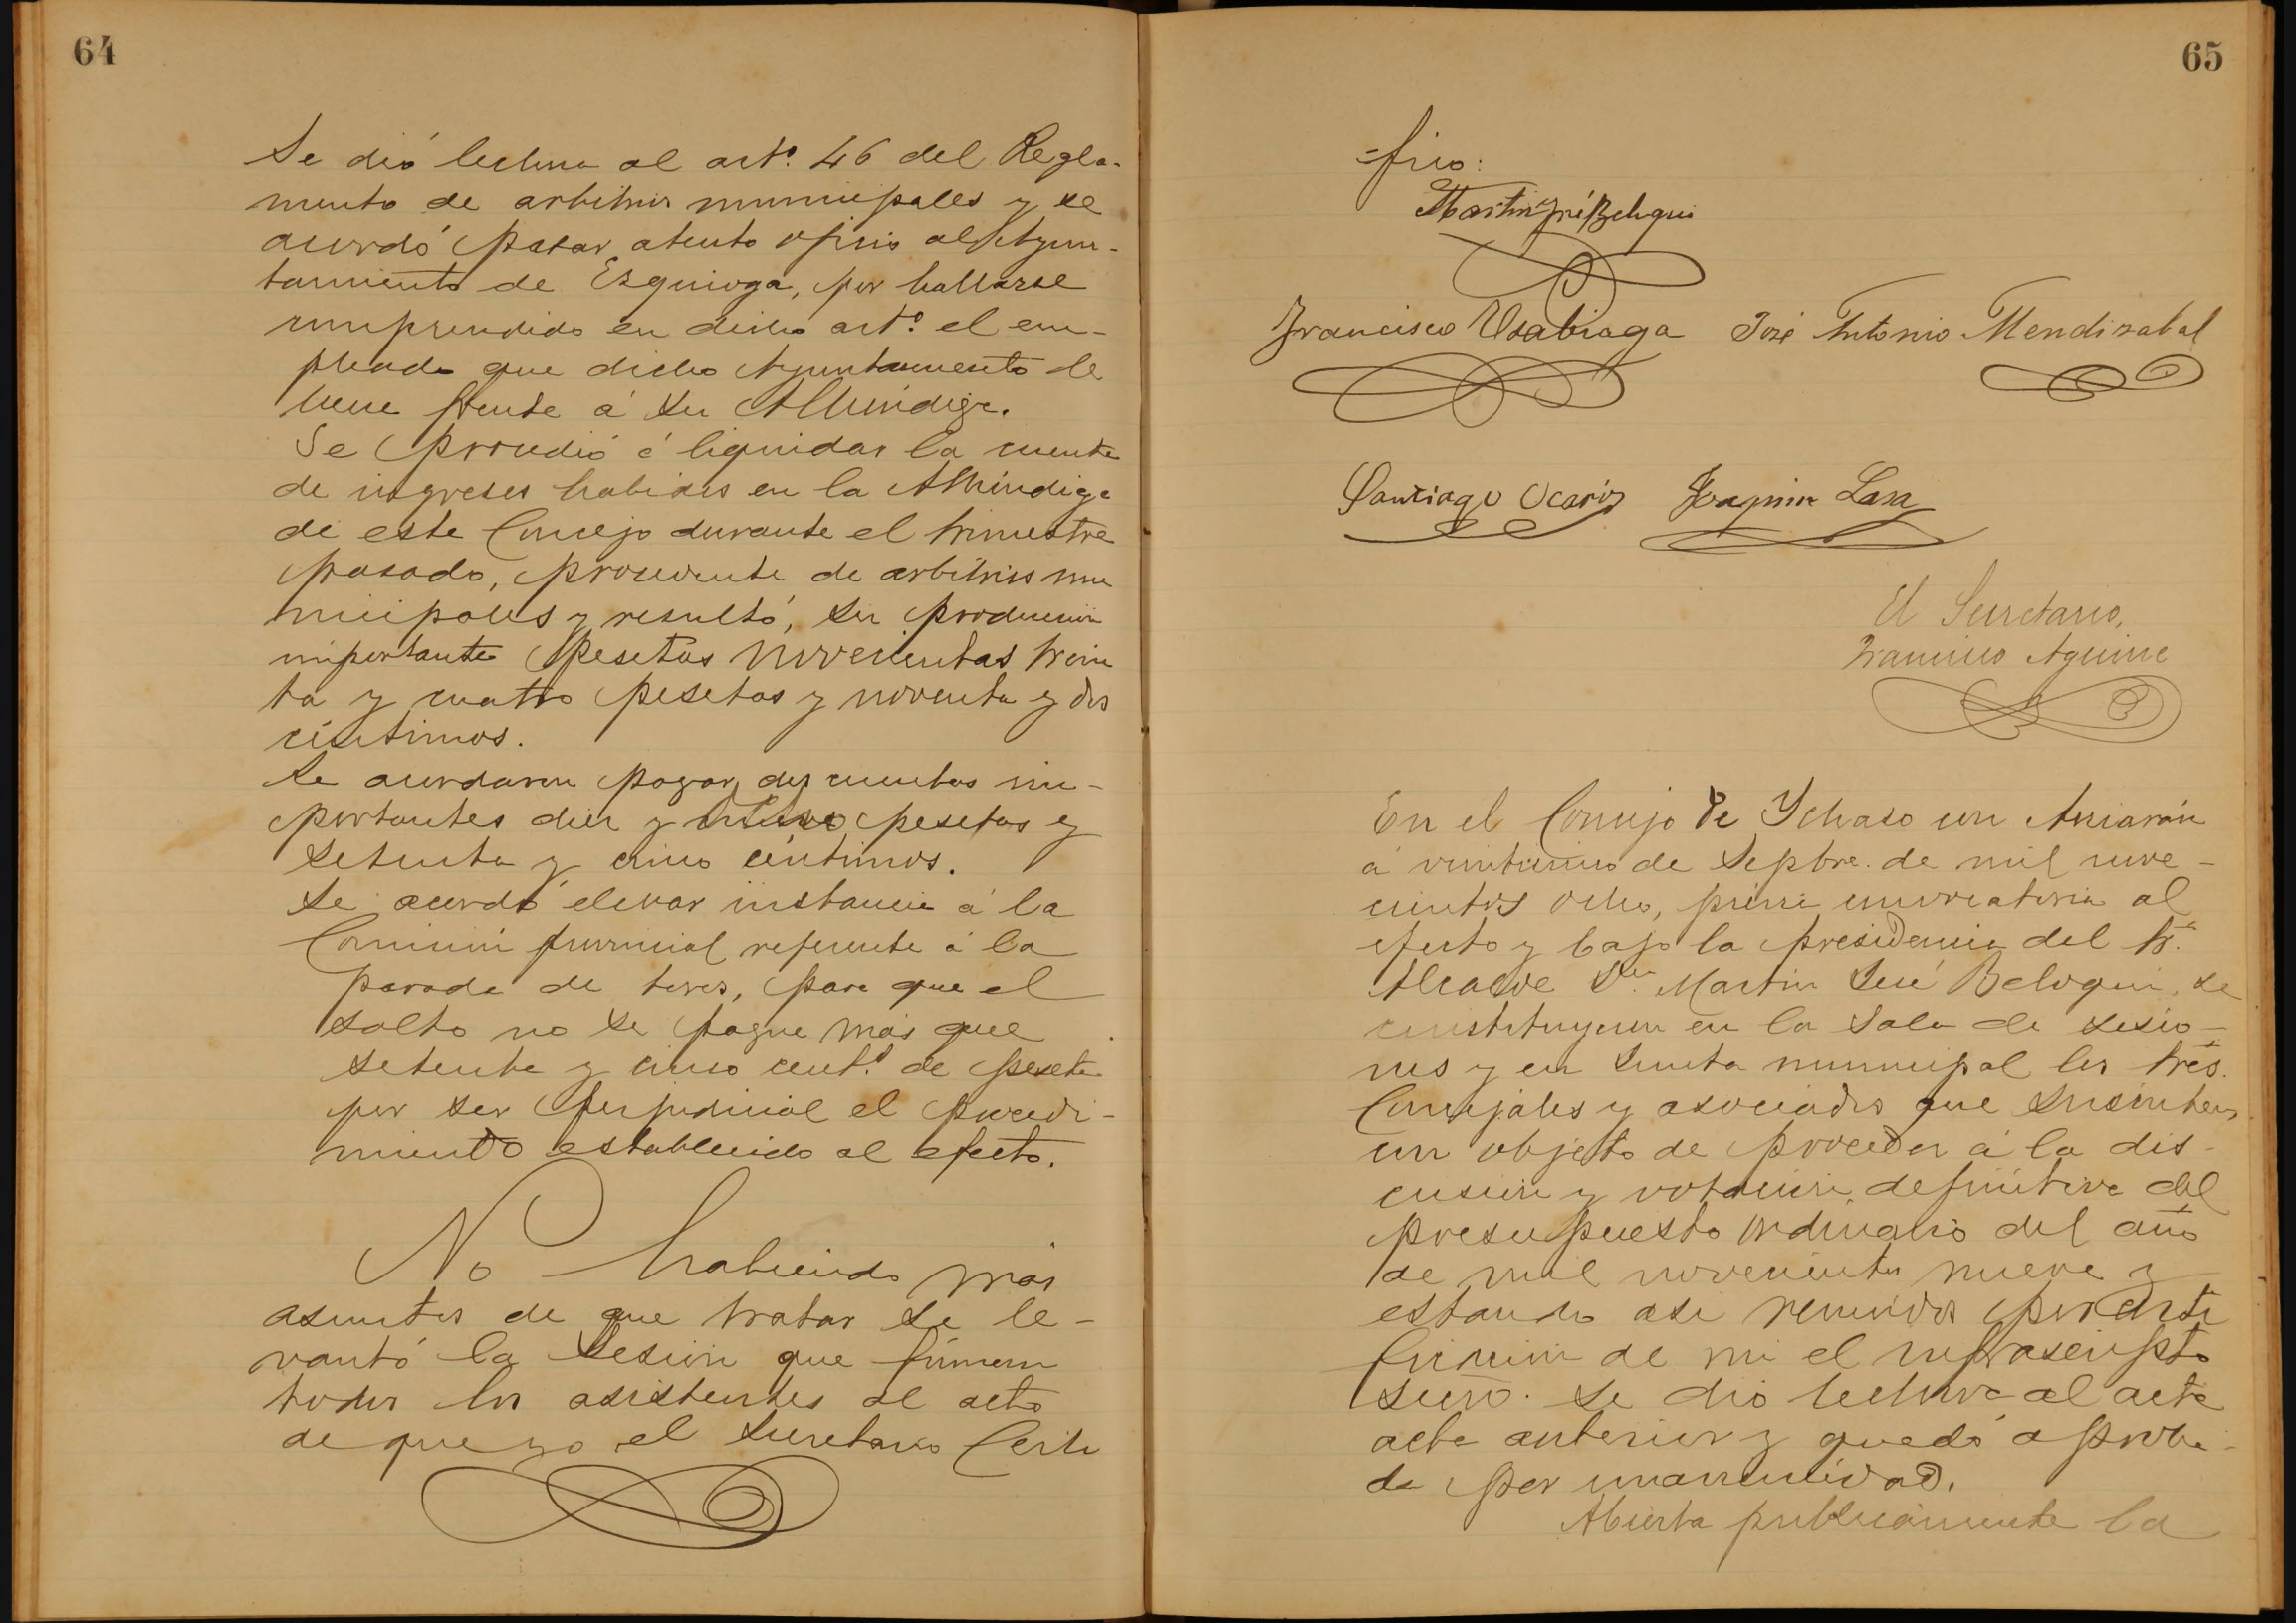 64
Se dió lectura al artº. 46 del Regla-
mento de arbitrios municipales y se
acordó pasar atento oficio al Ayun-
tamiento de Ezquioga, por hallarse
comprendido en dicho artº. el em-
pleado que dicho Ayuntamiento le
tiene frente á su Alhóndiga.
Se procedió á liquidar la cuenta
de ingresos habidos en la Alhóndiga
de este Concejo durante el trimestre
pasado, procedente de arbitrios mu
nicipales y resultó, su producción
importante pesetas novecientas trein
ta y cuatro pesetas y noventa y dos
céntimos.
Se acordaron pagar dos cuentas im-
portantes diez y pesetas y
setenta y cinco céntimos.
Se acordó elevar instancia á la
Comisión provincial referente á la
parada de toros, para que el
salto no se pague más que
setenta y cinco centˢ. de peseta
por ser perjudicial el procedi-
miento establecido al efecto.
No habiendo más
asuntos de que tratar se le-
vantó la Sesión que firman
todos los asistentes al acto
de que yo el Secretario Certi
65
=fico:
Martin José Beloqui
Francisco Usabiaga José Antonio Mendizabal
Santiago Ocariz Joaquin Lasa
El Secretario,
Francisco Aguirre
En el Concejo de Ychaso con Arriarán
á veinticinco de Sepbre. de mil nove-
cientos ocho, prévia convocatoria al
efecto y bajo la presidencia del Sr.
Alcalde Dn. Martin José Beloqui, se
constituyeron en la Sala de sesio-
nes y en Junta municipal los tres.
Concejales y asociados que suscriben,
con objeto de proceder á la dis-
cusión y votación definitiva del
presupuesto ordinario del año
de mil novecientos nueve y
estando asi reunidos por ante
de mi el infrascripto
Secrº. Se dió lectura al acta
acta anterior y quedó aproba-
da por unanimidad.
Abierta publicamente la